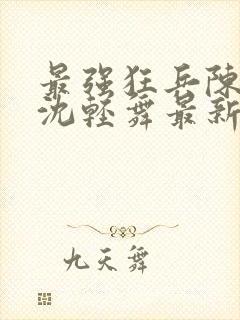 最强狂兵陈
沈轻舞最新
九天舞